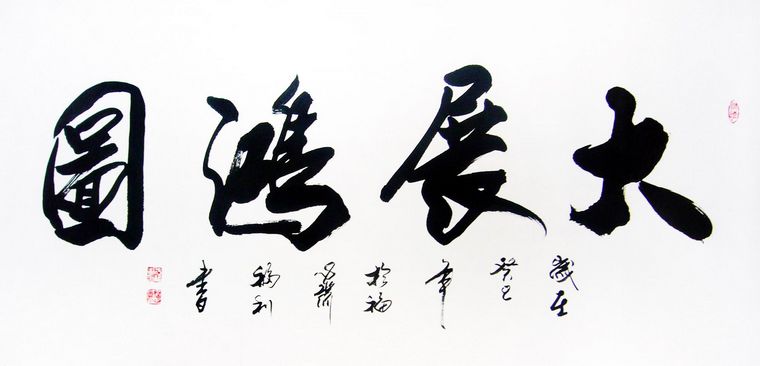 大展鴻圖
歲在癸巳年於福心齋利書